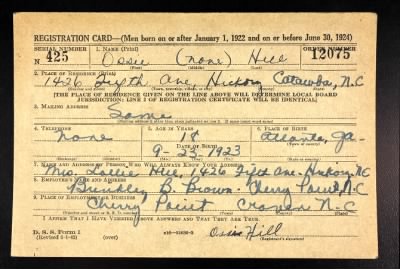 REGISTRATION CARD—(Men born on or after January 1, 1922 and on or before June 30, 1924)
SERIAL NUMBER 1. NAME (Print) ORDER NUMBER
N 425 Ossie (none) Hill 12075
(First) (Middle) (Last)
2. PLACE OF RESIDENCE (Print)
1426 Fifth Ave, Hickory Catawba, N.C
[THE PLACE OF RESIDENCE GIVEN ON THE LINE ABOVE WILL DETERMINE LOCAL BOARD
JURISDICTION; LINE 2 OF REGISTRATION CERTIFICATE WILL BE IDENTICAL]
3. MAILING ADDRESS
Same
4. TELEPHONE 5. AGE IN YEARS 6. PLACE OF BIRTH
none Atlanta, Ga
DATE OF BIRTH
9-23-1923
7. NAME AND ADDRESS OF PERSON WHO WILL ALWAYS KNOW YOUR ADDRESS
Mrs Hill, 1426 Fifth Ave. Hickory, N.C
8. EMPLOYER'S NAME AND ADDRESS
B. Brown. Cherry Point, N.C
9. PLACE OF EMPLOYMENT OR BUSINESS
Cherry Point Craven N-C
I AFFIRM THAT I HAVE VERIFIED ABOVE ANSWERS AND THAT THEY ARE TRUE.
D. S. S. Form 1 Ossie Hill
(Registrant's signature)